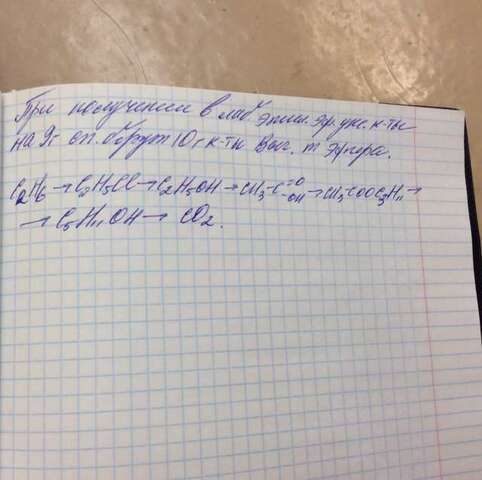 При получении в лаб этил. эф. укс. к-ты
на 9г сп. берут 10г к-ты Выч. m эфира.
C₂H₆ → C₂H₅Cl → C₂H₅OH → CH₃-C=O-OH → CH₃COOC₅H₁₁ →
→ C₅H₁₁OH → CO₂.